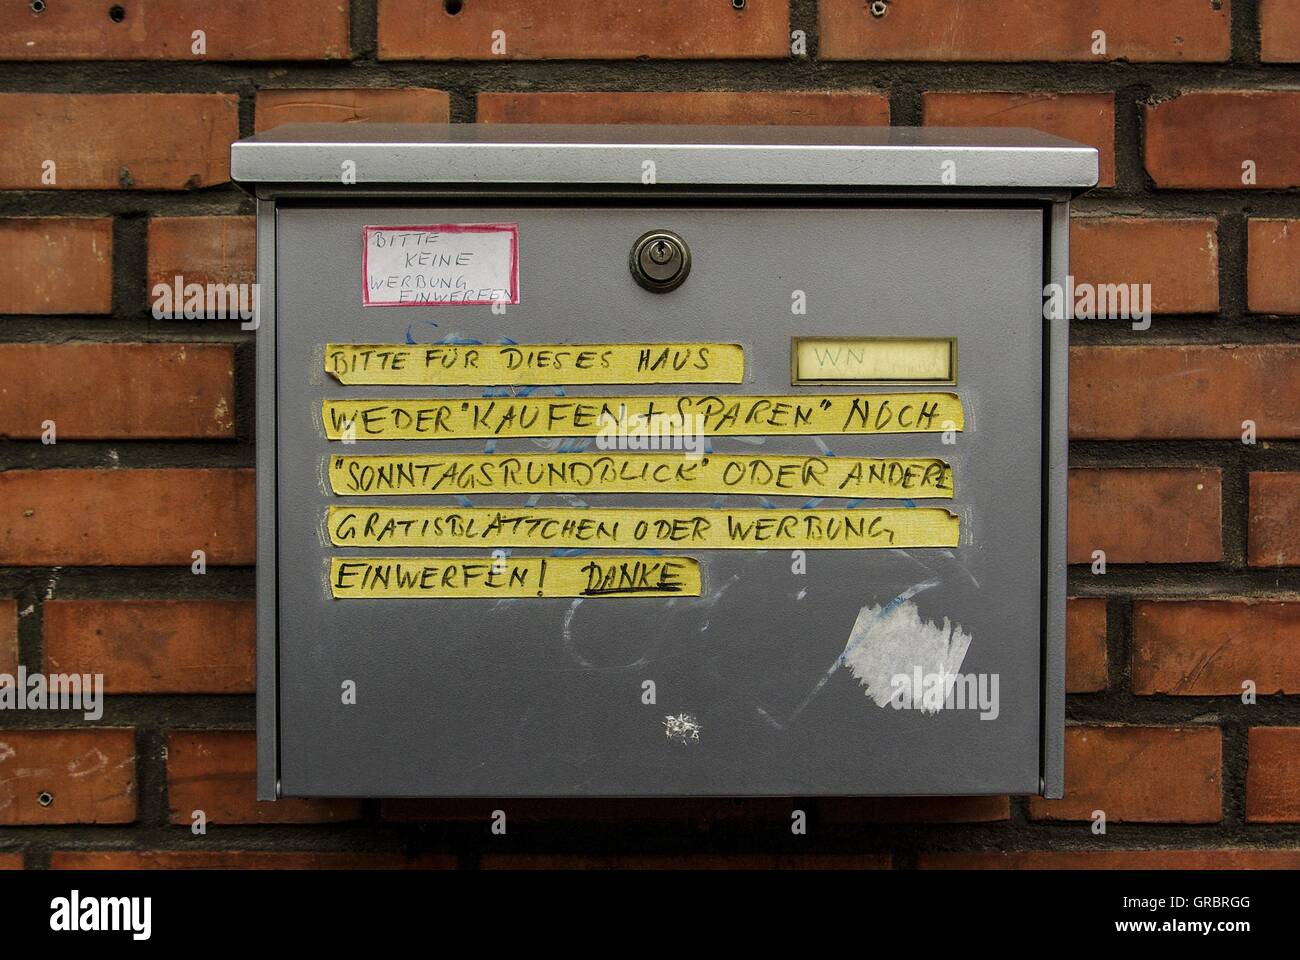 BITTE
KEINE
WERBUNG
EINWERFEN
BITTE FÜR DIESES HAUS
WN
WEDER "KAUFEN + SPAREN" NOCH
"SONNTAGSRUNDBLICK" ODER ANDERE
GRATISBLÄTTCHEN ODER WERBUNG
EINWERFEN! DANKE
alamy
alamy
Image ID: GRBRGG
www.alamy.com